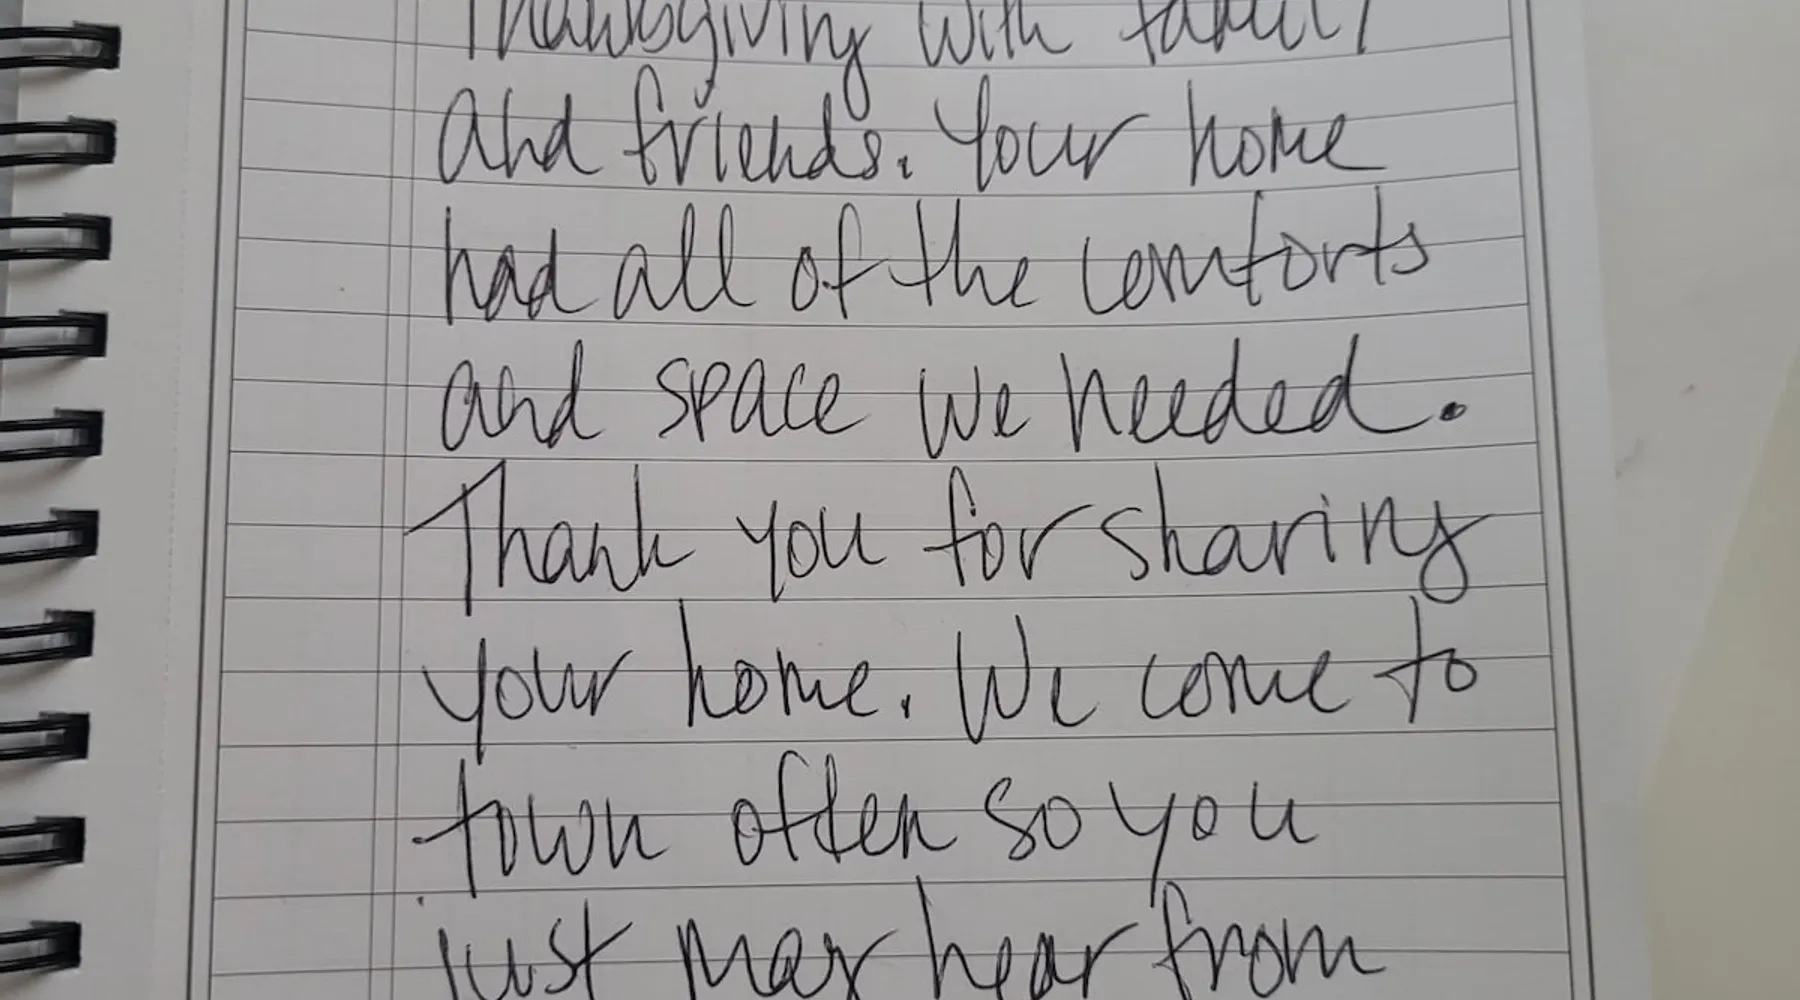 Thanksgiving with family
and friends. Your home
had all of the comforts
and space we needed.
Thank you for sharing
your home. We come to
town often so you
just may hear from